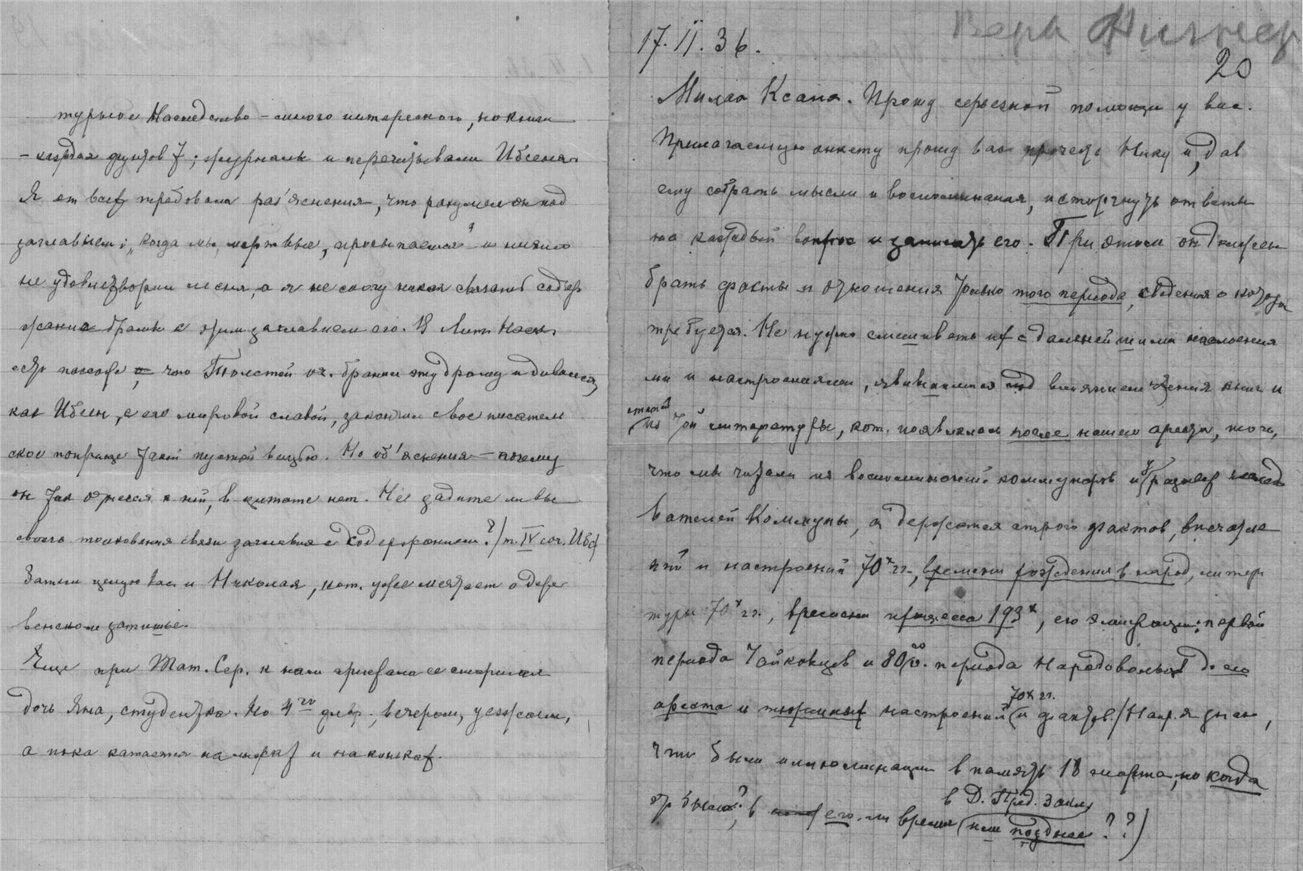 турном Наследство – много интересного, но книги
– каждая фунтов 7; журналы и перечитывали Ибсена.
Я от всех требовала раз'яснения, что разумел он под
заглавием: „когда мы, мертвые, просыпаемся" и никто
не удовлетворил меня, а я не смогу никак связать содер
жание драмы с этим заглавием его. В Лит. Насл.
есть пассаж, что Толстой оч. бранил эту драму и дивился,
как Ибсен, с его мировой славой, закончил свое писатель
ское поприще такой пустой вещью. Но об'яснения – почему
он так отнесся к ней, в цитате нет. Не дадите ли вы
своего толкования связи заглавия с содержанием?/т. IV соч. Ибс/
Затем целую вас и Николая, кот. уже мечтает о дере
венском затишье.
Еще при Тат. Сер. к нам приехала ее старшая
дочь Яна, студентка. Но 4го февр., вечером, уезжает,
а пока катается на лыжах и на коньках.
Вера Фигнер
17.II.36.
20
Милая Ксана. Прошу серьезной помощи у вас.
Прилагаемую анкету прошу вас прочесть Нику и, дав
ему собрать мысли и воспоминания, исторгнуть ответы
на каждый вопрос и записать его. При этом он должен
брать факты и отношения только того периода, сведения о котором
требуется. Не нужно смешивать их с дальнейшими наслоения
ми и настроениями, явившимися под влиянием чтения книг и
статей
из той литературы, кот. появилась после нашего ареста, того,
что мы читали из воспоминаний коммунаров и
вателей Коммуны, а держаться строй фактов, впечатле
ний и настроений 70х гг., времени хождения в народ, литера
туры 70х гг., времени процесса 193х, его эмиграции; первой
периода Чайковцев и 80го. периода Народовольцев до его
ареста и тюрьмы настроений и фактов. /Напр. я знаю,
70х гг.
что были иллюминации в память 18 марта, но когда
это было?, в его ли время или позднее??)
в Д. Пред. Закл.